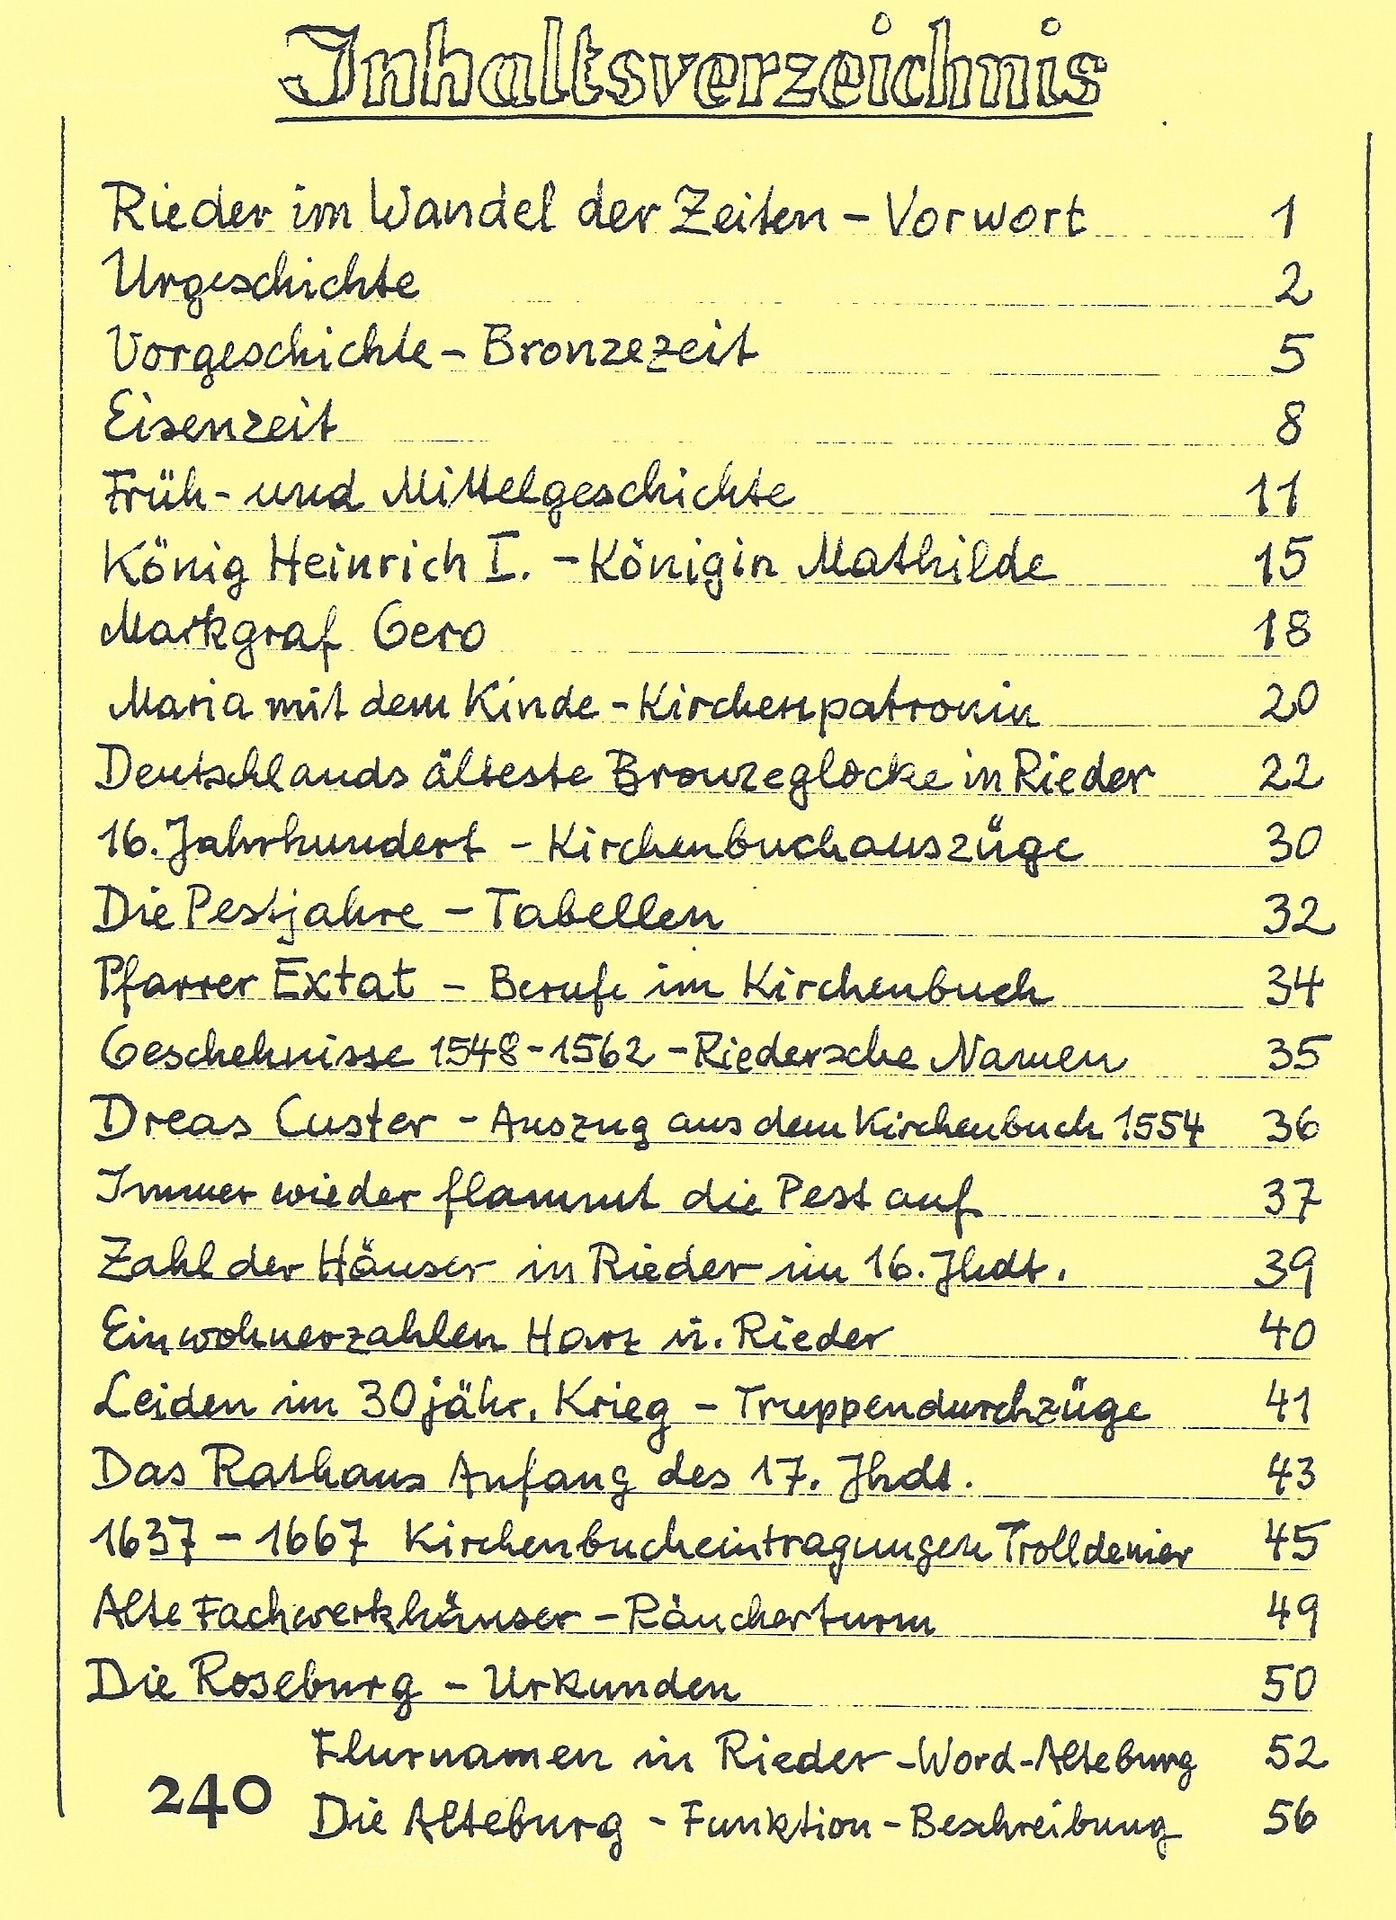 Inhaltsverzeichnis
Rieder im Wandel der Zeiten - Vorwort 1
Urgeschichte 2
Vorgeschichte - Bronzezeit 5
Eisenzeit 8
Früh- und Mittelgeschichte 11
König Heinrich I. - Königin Mathilde 15
Markgraf Gero 18
Maria mit dem Kinde - Kirchenpatronin 20
Deutschlands älteste Bronzeglocke in Rieder 22
16. Jahrhundert - Kirchenbuchauszüge 30
Die Pestjahre - Tabellen 32
Pfarrer Extat - Berufe im Kirchenbuch 34
Geschehnisse 1548-1562 - Riedersche Namen 35
Dreas Custer - Auszug aus dem Kirchenbuch 1554 36
Immer wieder flammt die Pest auf 37
Zahl der Häuser in Rieder im 16. Jhdt. 39
Einwohnerzahlen Harz u. Rieder 40
Leiden im 30jähr. Krieg - Truppendurchzüge 41
Das Rathaus Anfang des 17. Jhdt. 43
1637 - 1667 Kirchenbucheintragungen Trolldenier 45
Alte Fachwerkhäuser - Räucherturm 49
Die Roseburg - Urkunden 50
Flurnamen in Rieder - Word - Alteburg 52
Die Alteburg - Funktion - Beschreibung 56
240